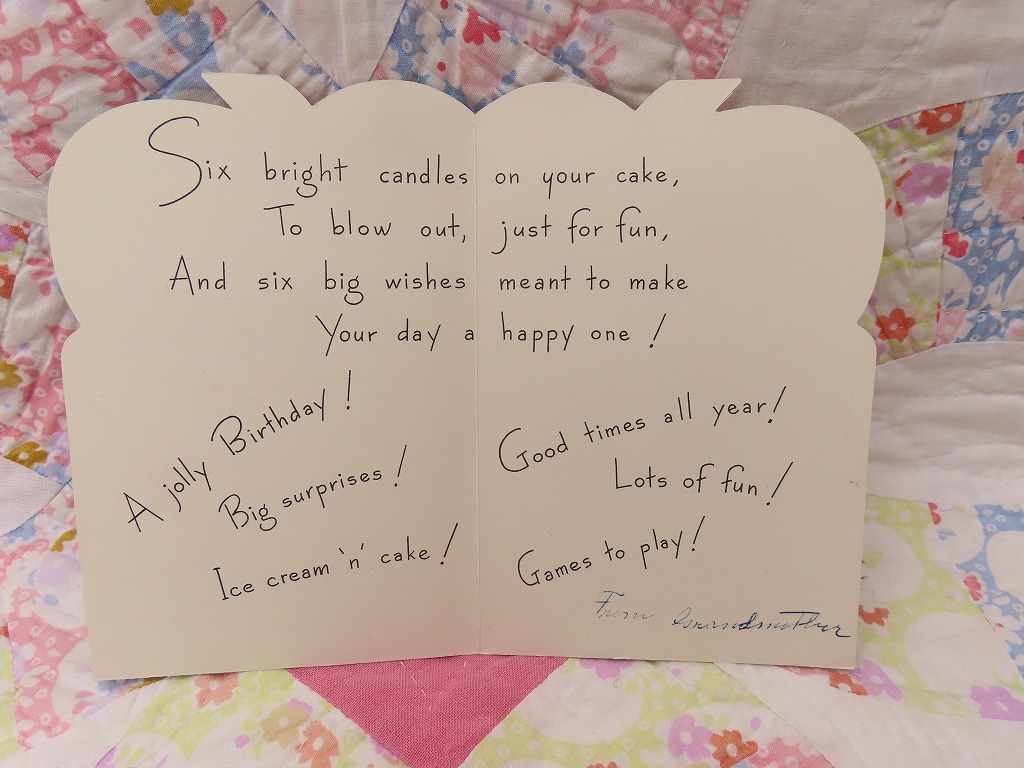 Six bright candles on your cake,
To blow out, just for fun,
And six big wishes meant to make
Your day a happy one!
A jolly Birthday!
Big surprises!
Ice cream 'n' cake!
Good times all year!
Lots of fun!
Games to play!
From Grandmother